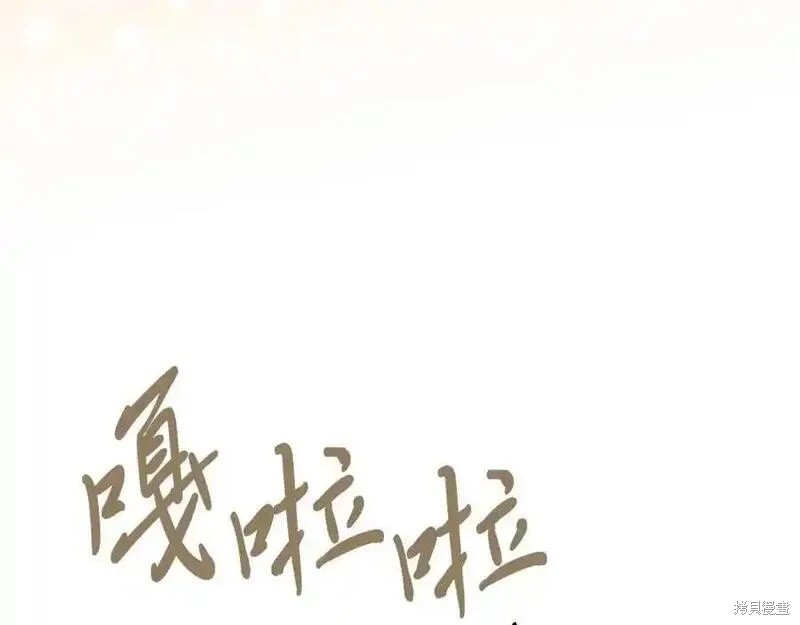 嘎啦啦
拷貝漫畫